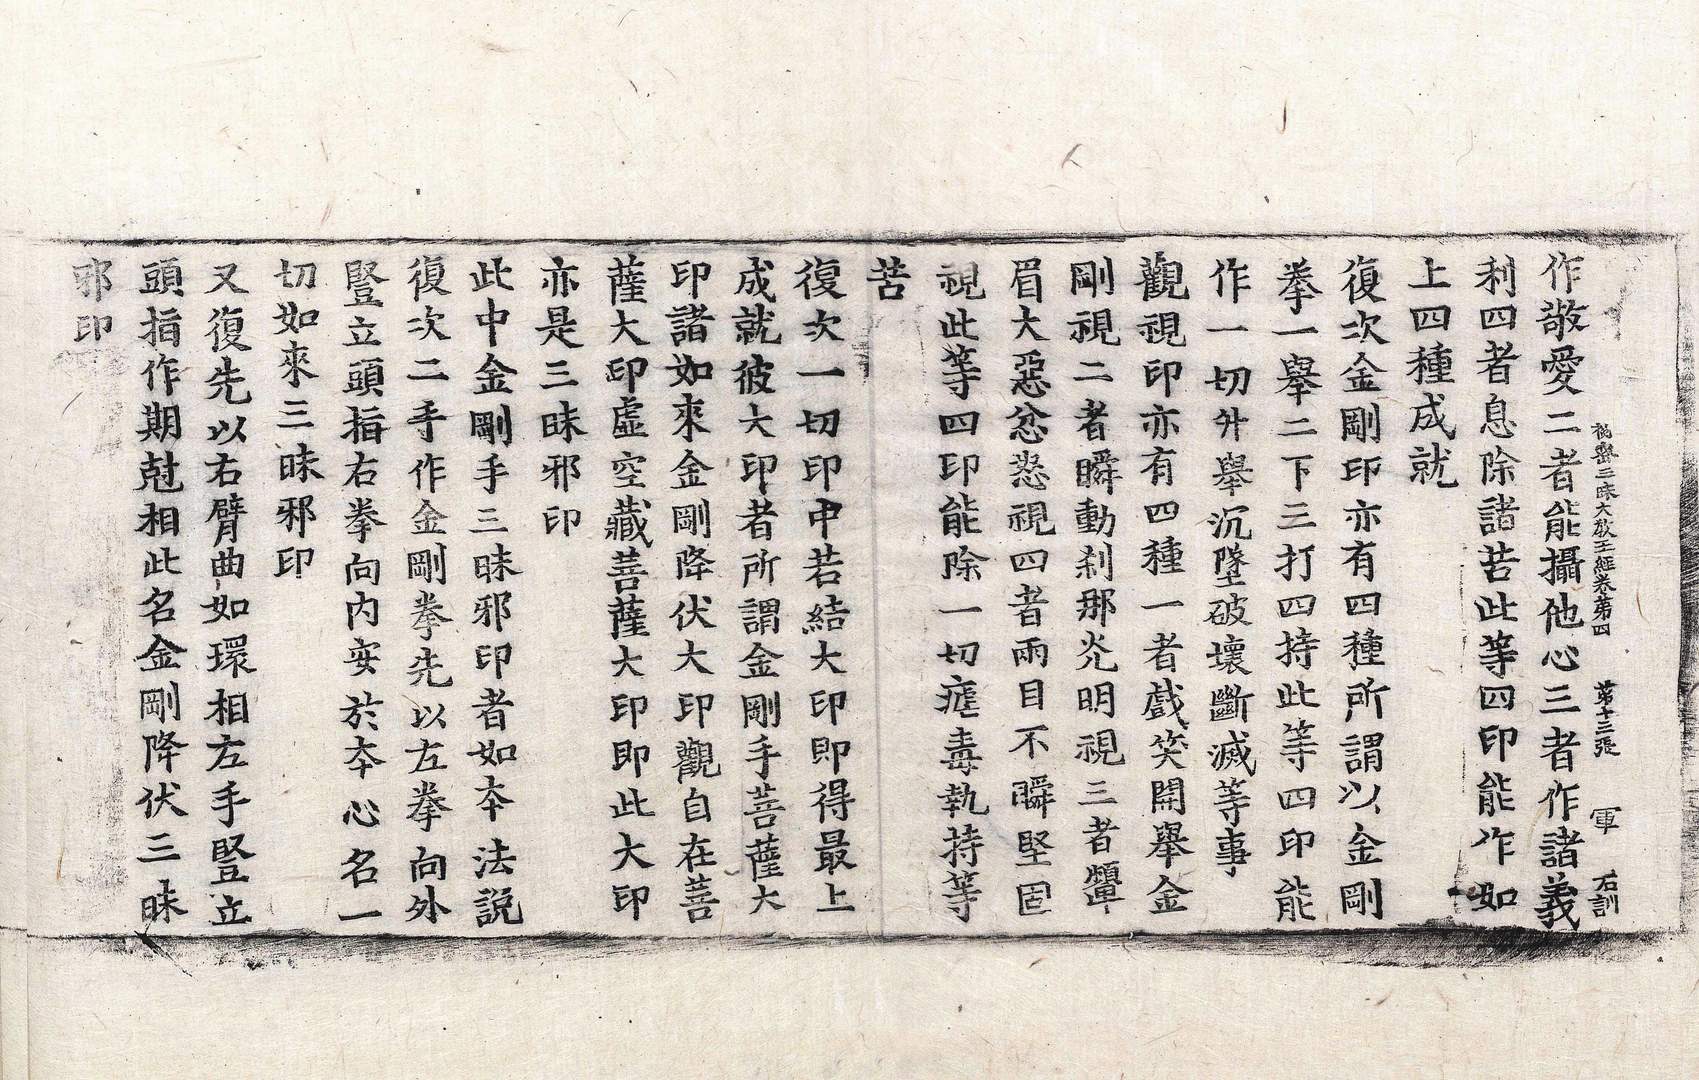 秘密三昧大教王經卷第四 第十三張 軍 石訓
作敬愛二者能攝他心三者作諸義
利四者息除諸苦此等四印能作如
上四種成就
復次金剛印亦有四種所謂以金剛
拳一舉二下三打四持此等四印能
作一切升舉沉墜破壞斷滅等事
觀視印亦有四種一者戲笑開舉金
剛視二者瞬動刹那光明視三者顰
眉大惡忿怒視四者兩目不瞬堅固
視此等四印能除一切瘧毒執持等
苦
復次一切印中若結大印即得最上
成就彼大印者所謂金剛手菩薩大
印諸如來金剛降伏大印觀自在菩
薩大印虛空藏菩薩大印即此大印
亦是三昧邪印
此中金剛手三昧邪印者如夲法說
復次二手作金剛拳先以左拳向外
豎立頭指右拳向內安於夲心名一
切如來三昧邪印
又復先以右臂曲如環相左手豎立
頭指作期尅相此名金剛降伏三昧
邪印